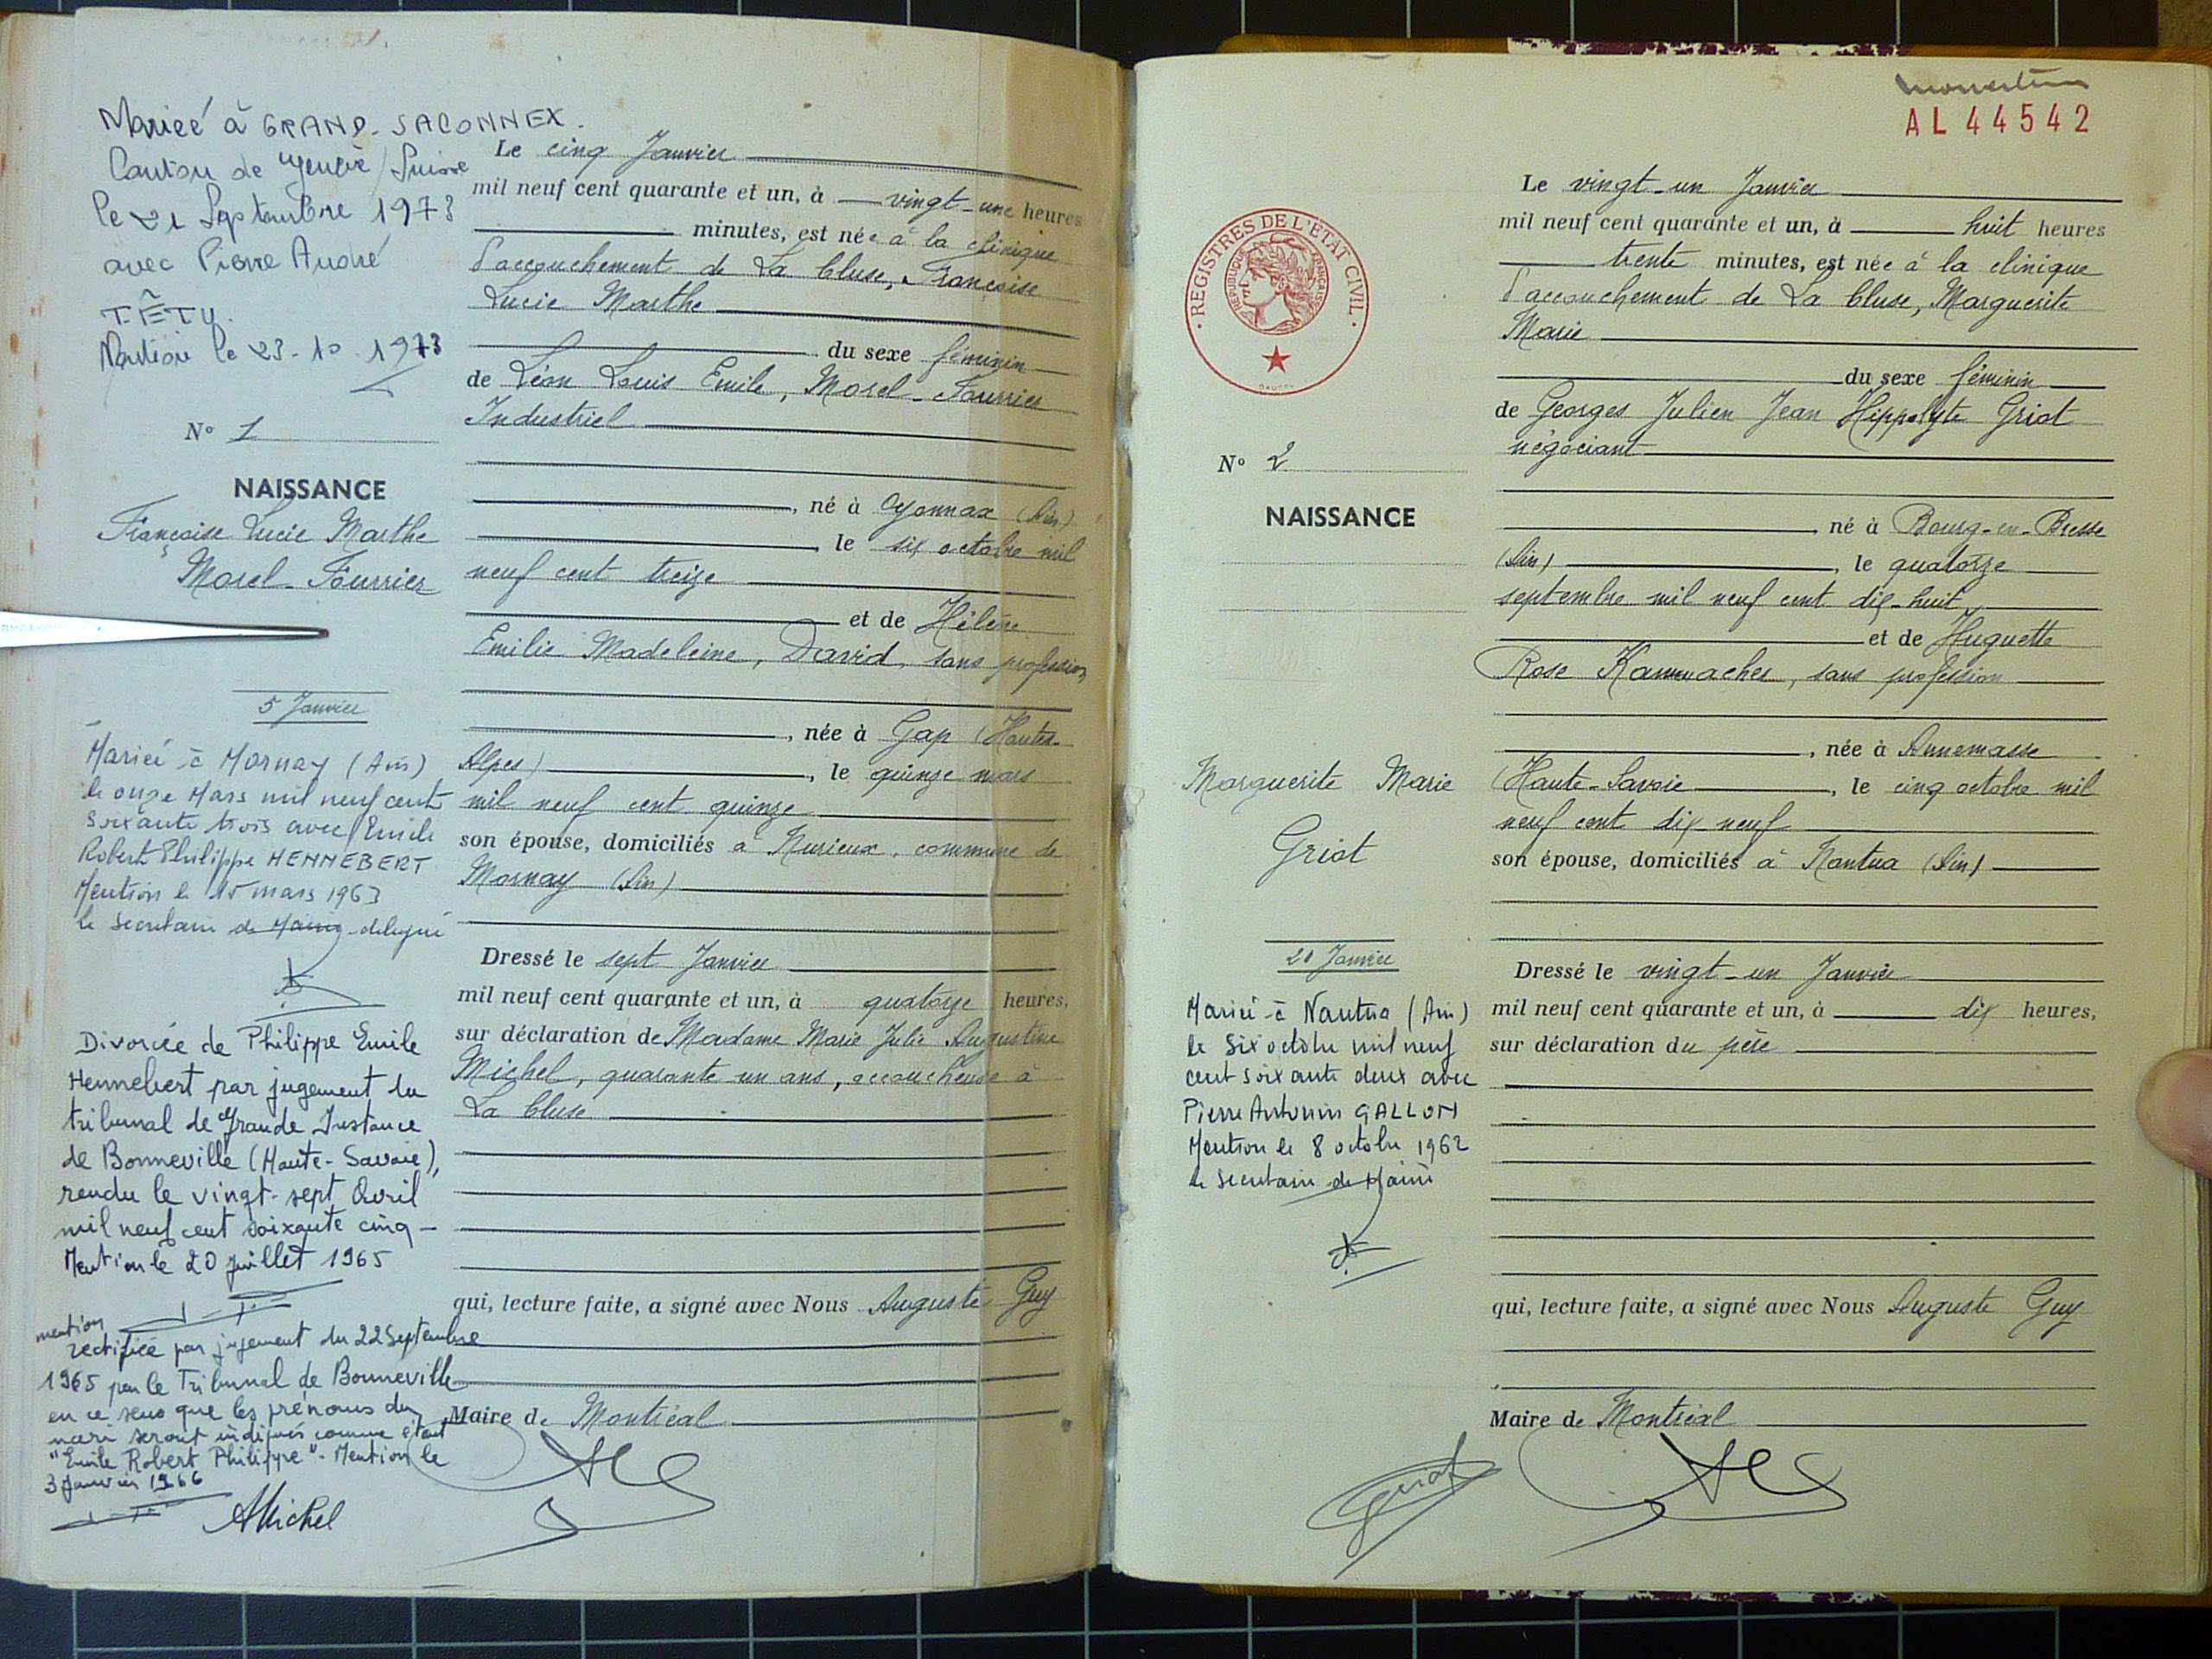 Mariée à GRAND-SACONNEX.
Canton de Genève / Suisse
le 21 Septembre 1973
avec Pierre André
TÊTU.
Mention le 23-10-1973
N° 1
NAISSANCE
Françoise Lucie Marthe
Morel-Fourrier
5 Janvier
Mariée à Mornay (Ain)
le onze Mars mil neuf cent
soixante trois avec Emile
Robert Philippe HENNEBERT
Mention le 15 mars 1963
le Secrétaire de Mairie délégué
Divorcée de Philippe Emile
Hennebert par jugement du
tribunal de Grande Instance
de Bonneville (Haute-Savoie),
rendu le vingt-sept Avril
mil neuf cent soixante cinq -
Mention le 20 Juillet 1965
mention
rectifiée par jugement du 22 Septembre
1965 par le Tribunal de Bonneville
en ce sens que les prénoms du
mari seront indiqués comme étant
"Emile Robert Philippe" - Mention le
3 Janvier 1966
AMichel
Le cinq Janvier
mil neuf cent quarante et un, à vingt-une heures
minutes, est née à la clinique
d'accouchement de La Cluse, Françoise
Lucie Marthe
du sexe féminin
de Léon Louis Emile, Morel-Fourrier
Industriel
, né à Oyonnax (Ain)
, le six octobre mil
neuf cent treize
et de Hélène
Emilie Madeleine, David, sans profession
, née à Gap (Hautes-
Alpes) , le quinze mars
mil neuf cent quinze
son épouse, domiciliés à Nurieux, commune de
Mornay (Ain)
Dressé le sept Janvier
mil neuf cent quarante et un, à quatorze heures,
sur déclaration de Madame Marie Julie Augustine
Michel, quarante un ans, accoucheuse à
La Cluse
qui, lecture faite, a signé avec Nous Auguste Guy
Maire de Montréal
AL 44542
REGISTRES DE L'ÉTAT CIVIL
RÉPUBLIQUE FRANÇAISE
N° 2
NAISSANCE
Marguerite Marie
Griot
21 Janvier
Mariée à Nantua (Ain)
le Six octobre mil neuf
cent soixante deux avec
Pierre Antonin GALLON
Mention le 8 octobre 1962
le Secrétaire de Mairie
Le vingt-un Janvier
mil neuf cent quarante et un, à huit heures
trente minutes, est née à la clinique
d'accouchement de La Cluse, Marguerite
Marie
du sexe féminin
de Georges Julien Jean Hippolyte Griot
négociant
, né à Bourg-en-Bresse
(Ain) , le quatorze
septembre mil neuf cent dix-huit,
et de Huguette
Rose Kammacher, sans profession
, née à Annemasse
(Haute-Savoie , le cinq octobre mil
neuf cent dix neuf
son épouse, domiciliés à Nantua (Ain)
Dressé le vingt-un Janvier
mil neuf cent quarante et un, à dix heures,
sur déclaration du père
qui, lecture faite, a signé avec Nous Auguste Guy
Maire de Montréal
Griot